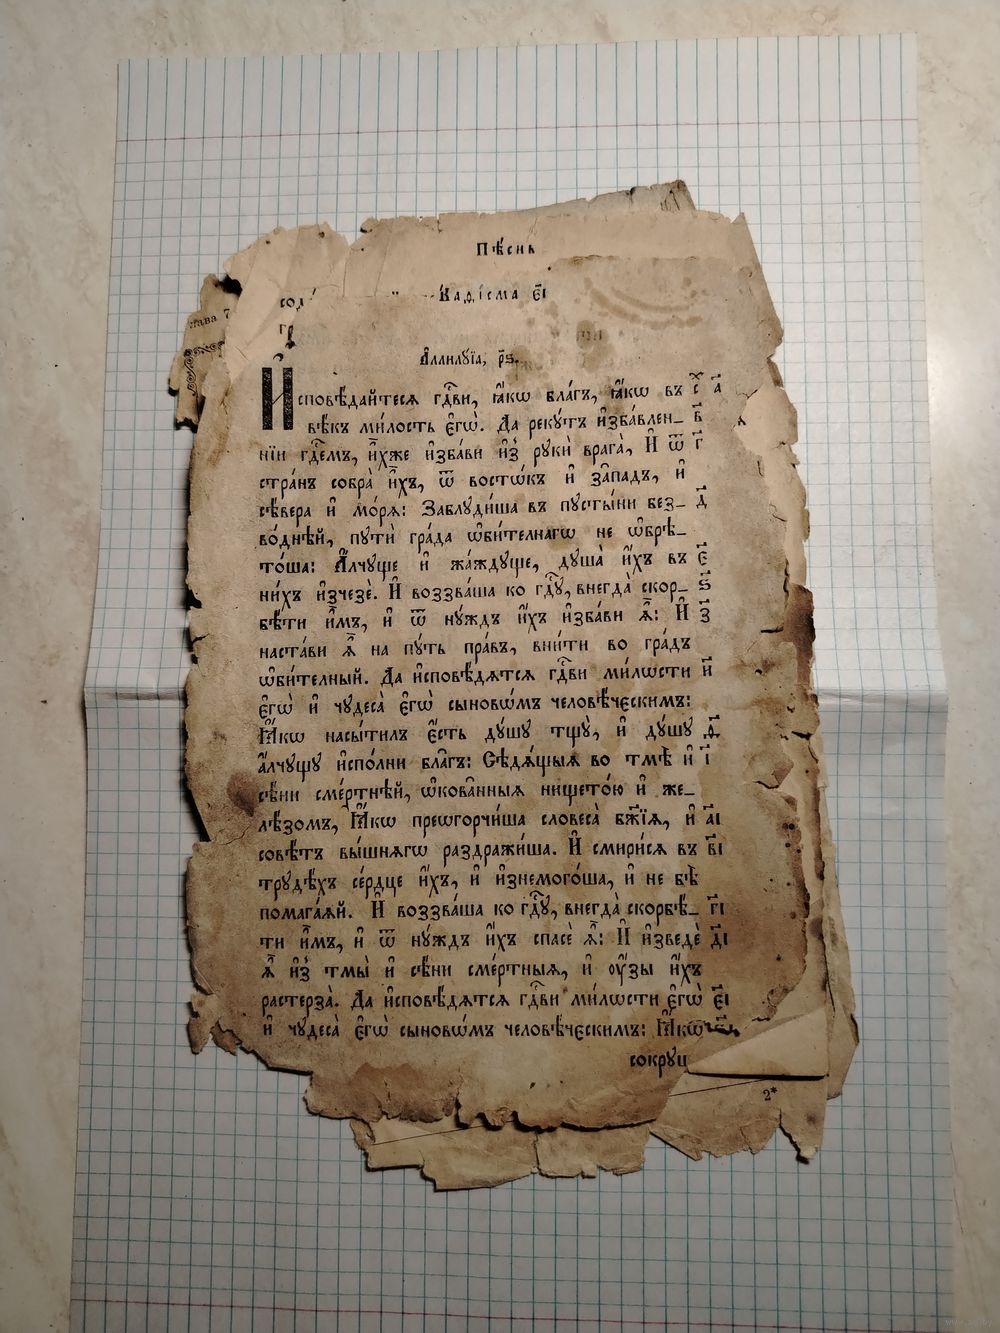 Пѣ́снь
Каѳі́сма є҃і
сод
лава 7
Аллилꙋ́їа, р҃ѕ.
Исповѣ́дайтесѧ гдⷭ҇ви, ꙗ҆́кѡ бла́гъ, ꙗ҆́кѡ въ а҃
вѣ́къ ми́лость є҆гѡ̀. Да рекꙋ́тъ и҆зба́влен- в҃
нїи гдⷭ҇емъ, и҆̀хже и҆зба́ви и҆з̾ рꙋкѝ врага̀, И҆ ѿ г҃
стра́нъ собра̀ и҆̀хъ, ѿ восто́къ и҆ за́падъ, и҆
сѣ́вера и҆ мо́рѧ: Заблꙋди́ша въ пꙋсты́ни без- д҃
во́днѣй, пꙋтѝ гра́да ѡ҆би́телнагѡ не ѡ҆брѣ-
то́ша: А҆́лчꙋще и҆ жа́ждꙋще, дꙋша̀ и҆́хъ въ є҃
ни́хъ и҆зчезѐ. И҆ воззва́ша ко гдⷭ҇ꙋ, внегда̀ скор- ѕ҃
бѣ́ти и҆̀мъ, и҆ ѿ нꙋ́ждъ и҆́хъ и҆зба́ви ѧ҆̀: И҆ з҃
наста́ви ѧ҆̀ на пꙋ́ть пра́въ, вни́ти во гра́дъ
ѡ҆би́телный. Да и҆сповѣ́дѧтсѧ гдⷭ҇ви ми́лѡсти и҃
є҆гѡ̀ и҆ чꙋдеса̀ є҆гѡ̀ сыновѡ́мъ человѣ́чєскимъ:
Ꙗ҆́кѡ насы́тилъ є҆́сть дꙋ́шꙋ тщꙋ̀, и҆ дꙋ́шꙋ ѳ҃
а҆́лчꙋщꙋ и҆спо́лни бла́гъ: Сѣдѧ́щыѧ во тмѣ̀ и҆ і҃
сѣ́ни сме́ртнѣй, ѡ҆кова̑нныѧ нището́ю и҆ же-
лѣ́зомъ, Ꙗ҆́кѡ преѡгорчи́ша словеса̀ бж҃їѧ, и҆ а҃і
совѣ́тъ вы́шнѧгѡ раздражи́ша. И҆ смири́сѧ въ в҃і
трꙋдѣ́хъ се́рдце и҆́хъ, и҆ и҆знемого́ша, и҆ не бѣ̀
помага́ѧй. И҆ воззва́ша ко гдⷭ҇ꙋ, внегда̀ скорбѣ́- г҃і
ти и҆̀мъ, и҆ ѿ нꙋ́ждъ и҆́хъ спасѐ ѧ҆̀: И҆ и҆зведѐ д҃і
ѧ҆̀ и҆з̾ тмы̀ и҆ сѣ́ни сме́ртныѧ, и҆ ᲂу҆́зы и҆́хъ
растерза̀. Да и҆сповѣ́дѧтсѧ гдⷭ҇ви ми́лѡсти є҆гѡ̀ є҃і
и҆ чꙋдеса̀ є҆гѡ̀ сыновѡ́мъ человѣ́чєскимъ: Ꙗ҆́кѡ
сокрꙋш
2*